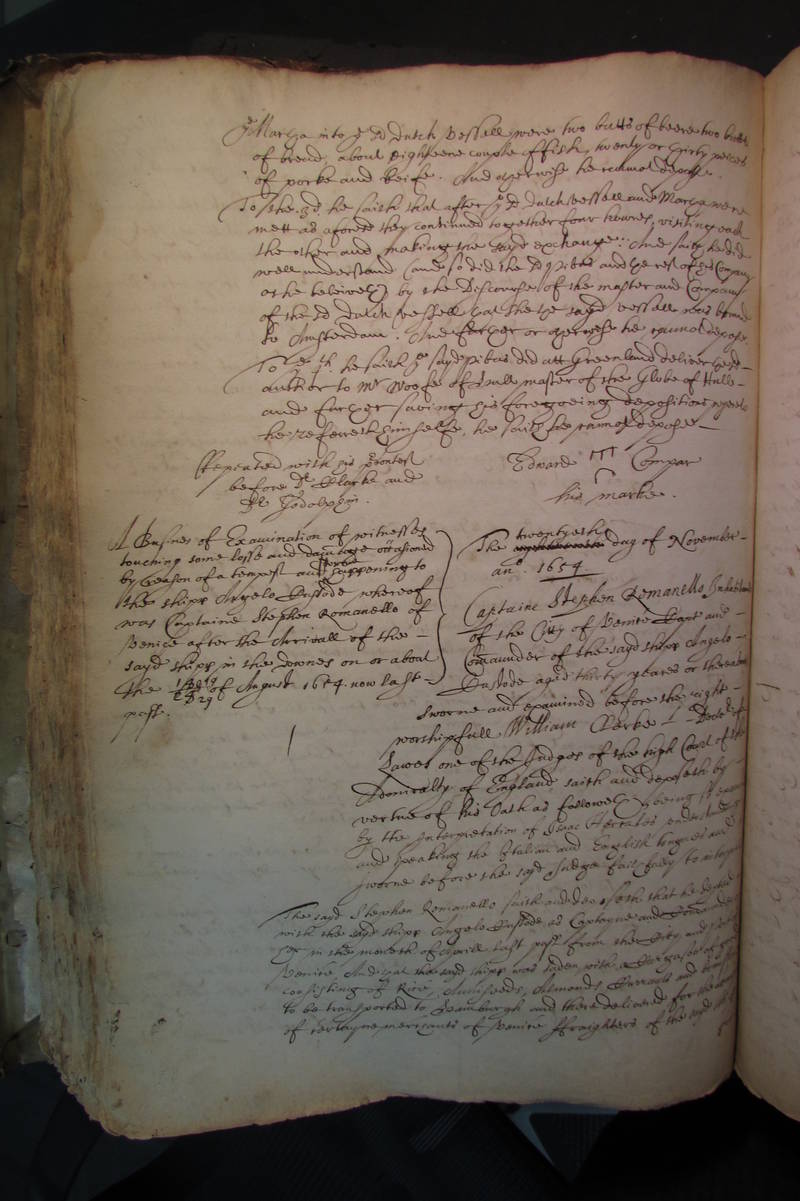 ye Marcza into ye sd dutch vessell were two butts of beere two butts
of bread, about eighteene couple of fish, twenty or thirty peices
of porke and beife. And otherwise he cannot depose.
To the 3d. he saith that after ye sd dutch vessell and Marcza were
mett as aforesd they continued together four houres, visiting each
the other and making the sayd exchange. And saith he did
well understand (and so did the sd and the rest of his Company
as he beleiveth) by the discourse of the master and Company
of the sd dutch vessell that the sayd vessell was bound
to Amsterdam. And further or otherwise he cannot depose.
To ye 4th. he saith ye sayd Pibus did att Greenland deliver
anchor to Mr Woolfe of Hull master of the Globe of Hull
and further saving his foregoeing depositions whereto
he referreth himselfe, he saith he cannot depose
Repeated with his
before Dr Clarke and
Dr Godolphin.
Edward Compar
his marke.
A Busines of Examination of witnesses
touching some losse and damage occasioned
by reason of a tempest and storme happening to
the shipp Angelo Custode whereof
was Captaine Stephen Romanello of
Venice after the Arrivall of the
sayd shipp in the downes on or about
the 19 29 of August 1654. now last
past.
The twentyeth day of November
ano. 1654
Captaine Stephen Romanello Inhabitant
of the Citty of Venice Capt and
Comaunder of the sayd shipp Angelo
Custode aged thirty yeares or thereabouts
sworne and examined before the right
worshipfull William Clerke Doctor of
Lawes one of the Judges of the high Court of the
Admiralty of England saith and deposeth by
vertue of his Oath as followeth, being
by the Interpretation of Isaac understanding
and speaking the Italian and English tongues and
sworne before the sayd Judge faithfully to interpret
The sayd Stephen Romanello saith and deposeth that he departed
with the sayd shipp Angelo Custode as Captayne and Comaunder
in the moneth of Aprill last past from the Citty and
Venice, And that the sayd shipp was laden with a Cargason of goods
consisting of Rice, Annisseeds, Almonds, Currants and
to be transported to Hamburgh and there delivered for the
of certayne merchants of Venice ffraighters of the sayd